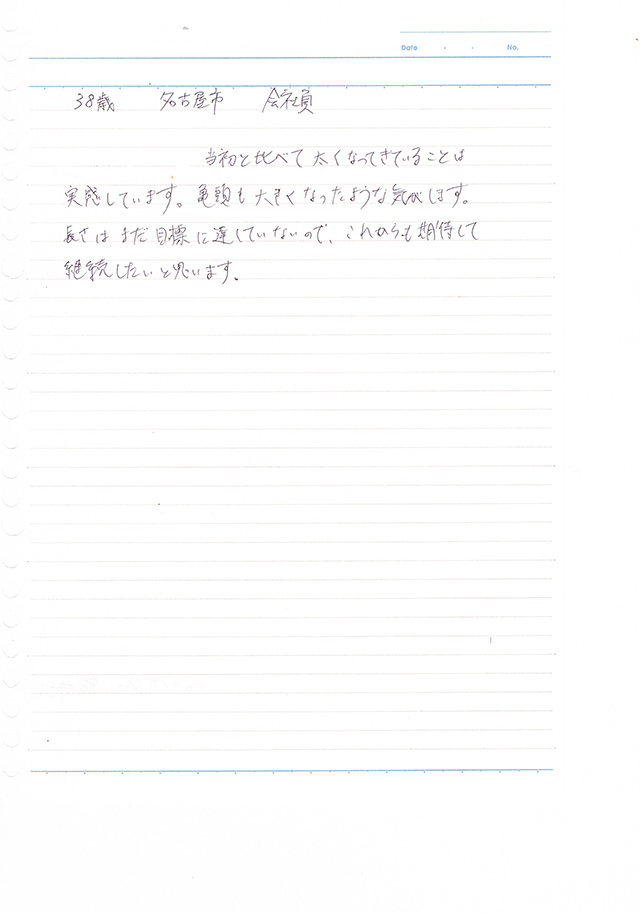 Date ・ ・ No.
38歳 名古屋市 会社員
当初と比べて太くなってきていることは
実感しています。亀頭も大きくなったような気がします。
長さはまだ目標に達していないので、これからも期待して
継続したいと思います。